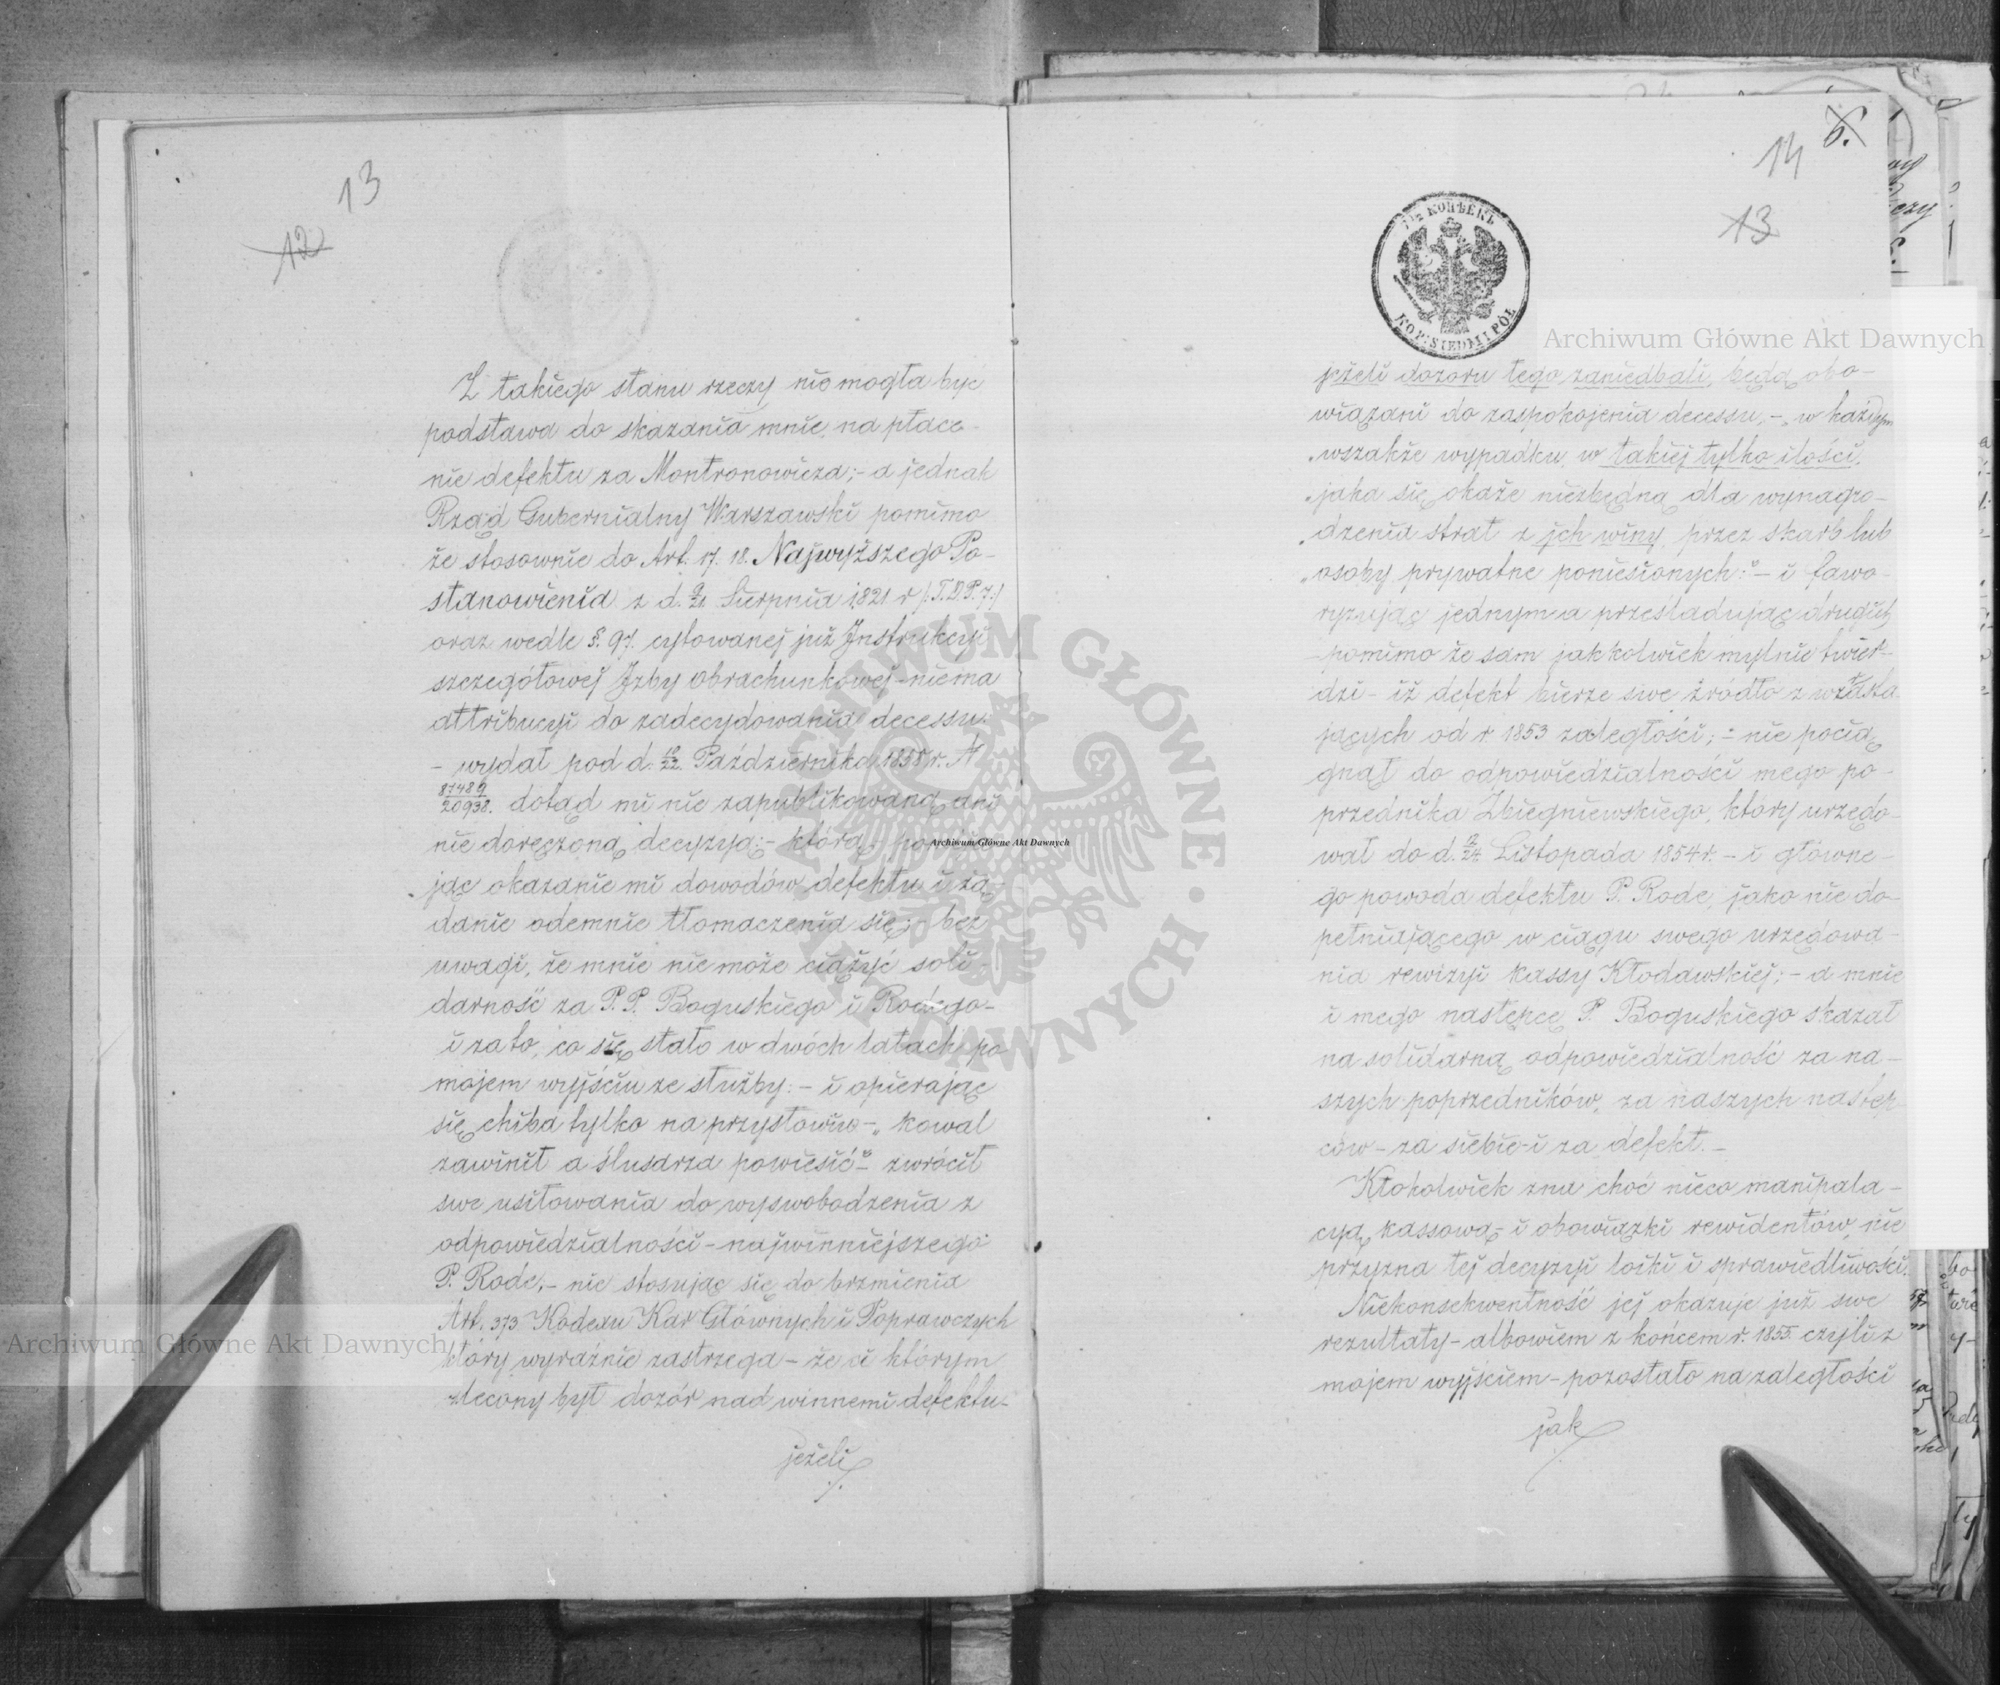 13
12
Z takiego stanu rzeczy nie mogła być
podstawa do skazania mnie, na płace-
nie defektu za Montronowicza; - a jednak
Rząd Gubernialny Warszawski pomimo
że stosownie do Art. 17. 18. Najwyższego Po-
stanowienia z d. 9/21 Sierpnia 1821 r /:T.D.P.7:/
oraz wedle §. 97. cytowanej już Instrukcyi
szczegółowej Izby Obrachunkowej - niema
attribucyi do zadecydowania decessu:
- wydał pod d. 10/22 Października 1858 r. N
87489/20938. dotąd mi nie zapublikowaną ani
nie doręczoną decyzyą; - którą
jąc okazanie mi dowodów defektu i żą-
danie odemnie tłomaczenia się; - bez
uwagi, że mnie nie może ciążyć soli-
darność za P.P. Boguskiego i Rodego -
i za to, co się stało w dwóch latach po
mojem wyjściu ze służby: - i opierając
się chiba tylko na przysłowiu - „kowal
zawinił a ślusarza powiesić" - zwrócił
swe usiłowania do wyswobodzenia z
odpowiedzialności - najwinniejszego
P. Rode, - nie stosując się do brzmienia
Art. 373 Kodexu Kar Głównych i Poprawczych
który wyraźnie zastrzega - że ci którym
zlecony był dozór nad winnemi defektu -
jeżeli
14
6.
13
7½ КОПѢЕКЪ
KOP: SIEDM I PÓŁ
jeżeli dozoru tego zaniedbali, będą obo-
wiązani do zaspokojenia decessu, - „w każdym
„wszakże wypadku, w takiej tylko ilości,
„jaka się okaże niezbędną dla wynagro-
„dzenia strat z ich winy przez skarb lub
„osoby prywatne poniesionych:" - i fawo-
ryzując jednym a prześladując drugich
- pomimo że sam jakkolwiek mylnie twier-
dzi - iż defekt bierze swe źródło z wzrasta
jących od r 1853 zaległości; - nie pocią
gnął do odpowiedzialności mego po-
przednika Zbiegniewskiego, który urzędo-
wał do d. 12/24 Listopada 1854 r. - i główne-
go powoda defektu P. Rode, jako nie do-
pełniającego w ciągu swego urzędowa-
nia rewizyi kassy Kłodawskiej; - a mnie
i mego następcę P. Boguskiego skazał
na solidarną odpowiedzialność za na-
szych poprzedników, za naszych następ
ców - za siebie i za defekt. -
Ktokolwiek zna choć nieco manipula-
cyą kassową - i obowiązki rewidentów, nie
przyzna tej decyzyi loiki i sprawiedliwości.
Niekonsekwentność jej okazuje już swe
rezultaty - albowiem z końcem r. 1855. czyli z
mojem wyjściem - pozostało na zaległości
jak
Archiwum Główne Akt Dawnych
Archiwum Główne Akt Dawnych
Archiwum Główne Akt Dawnych
ARCHIWUM GŁÓWNE · AKT DAWNYCH ·